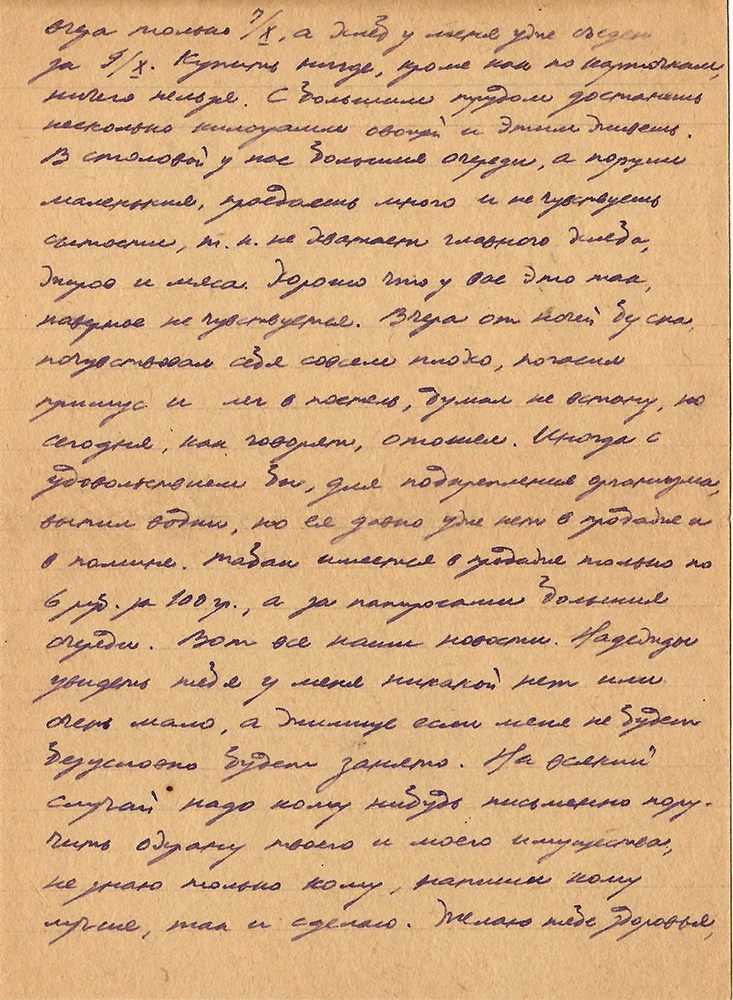 только 7/X, а хлеб у меня уже съеден
за 9/X. Купить нигде, кроме как по карточкам,
ничего нельзя. С большим трудом достанешь
несколько килограмм овощей и этим живешь.
В столовой у нас большия очереди, а порции
маленькия, проедаешь много и не чувствуешь
сытости, т. к. не хватает главного хлеба,
жиров и мяса. Хорошо что у вас это так,
наверное не чувствуется. Вчера от ночей без сна,
почувствовал себя совсем плохо, погасил
примус и лег в постель, думал не встану, но
сегодня, как говорят, отошел. Иногда с
удовольствием бы, для подкрепления организма,
выпил водки, но ея давно уже нет в продаже и
в помине. Табак имеется в продаже только по
6 руб. за 100 гр., а за папиросами большия
очереди. Вот все наши новости. Надежды
увидеть тебя у меня никакой нет или
очень мало, а жилище если меня не будет
безусловно будет занято. На всякий
случай надо кому нибудь письменно пору-
чить охрану твоего и моего имущества,
не знаю только кому, напиши кому
лучше, так и сделаю. Желаю тебе здоровья,